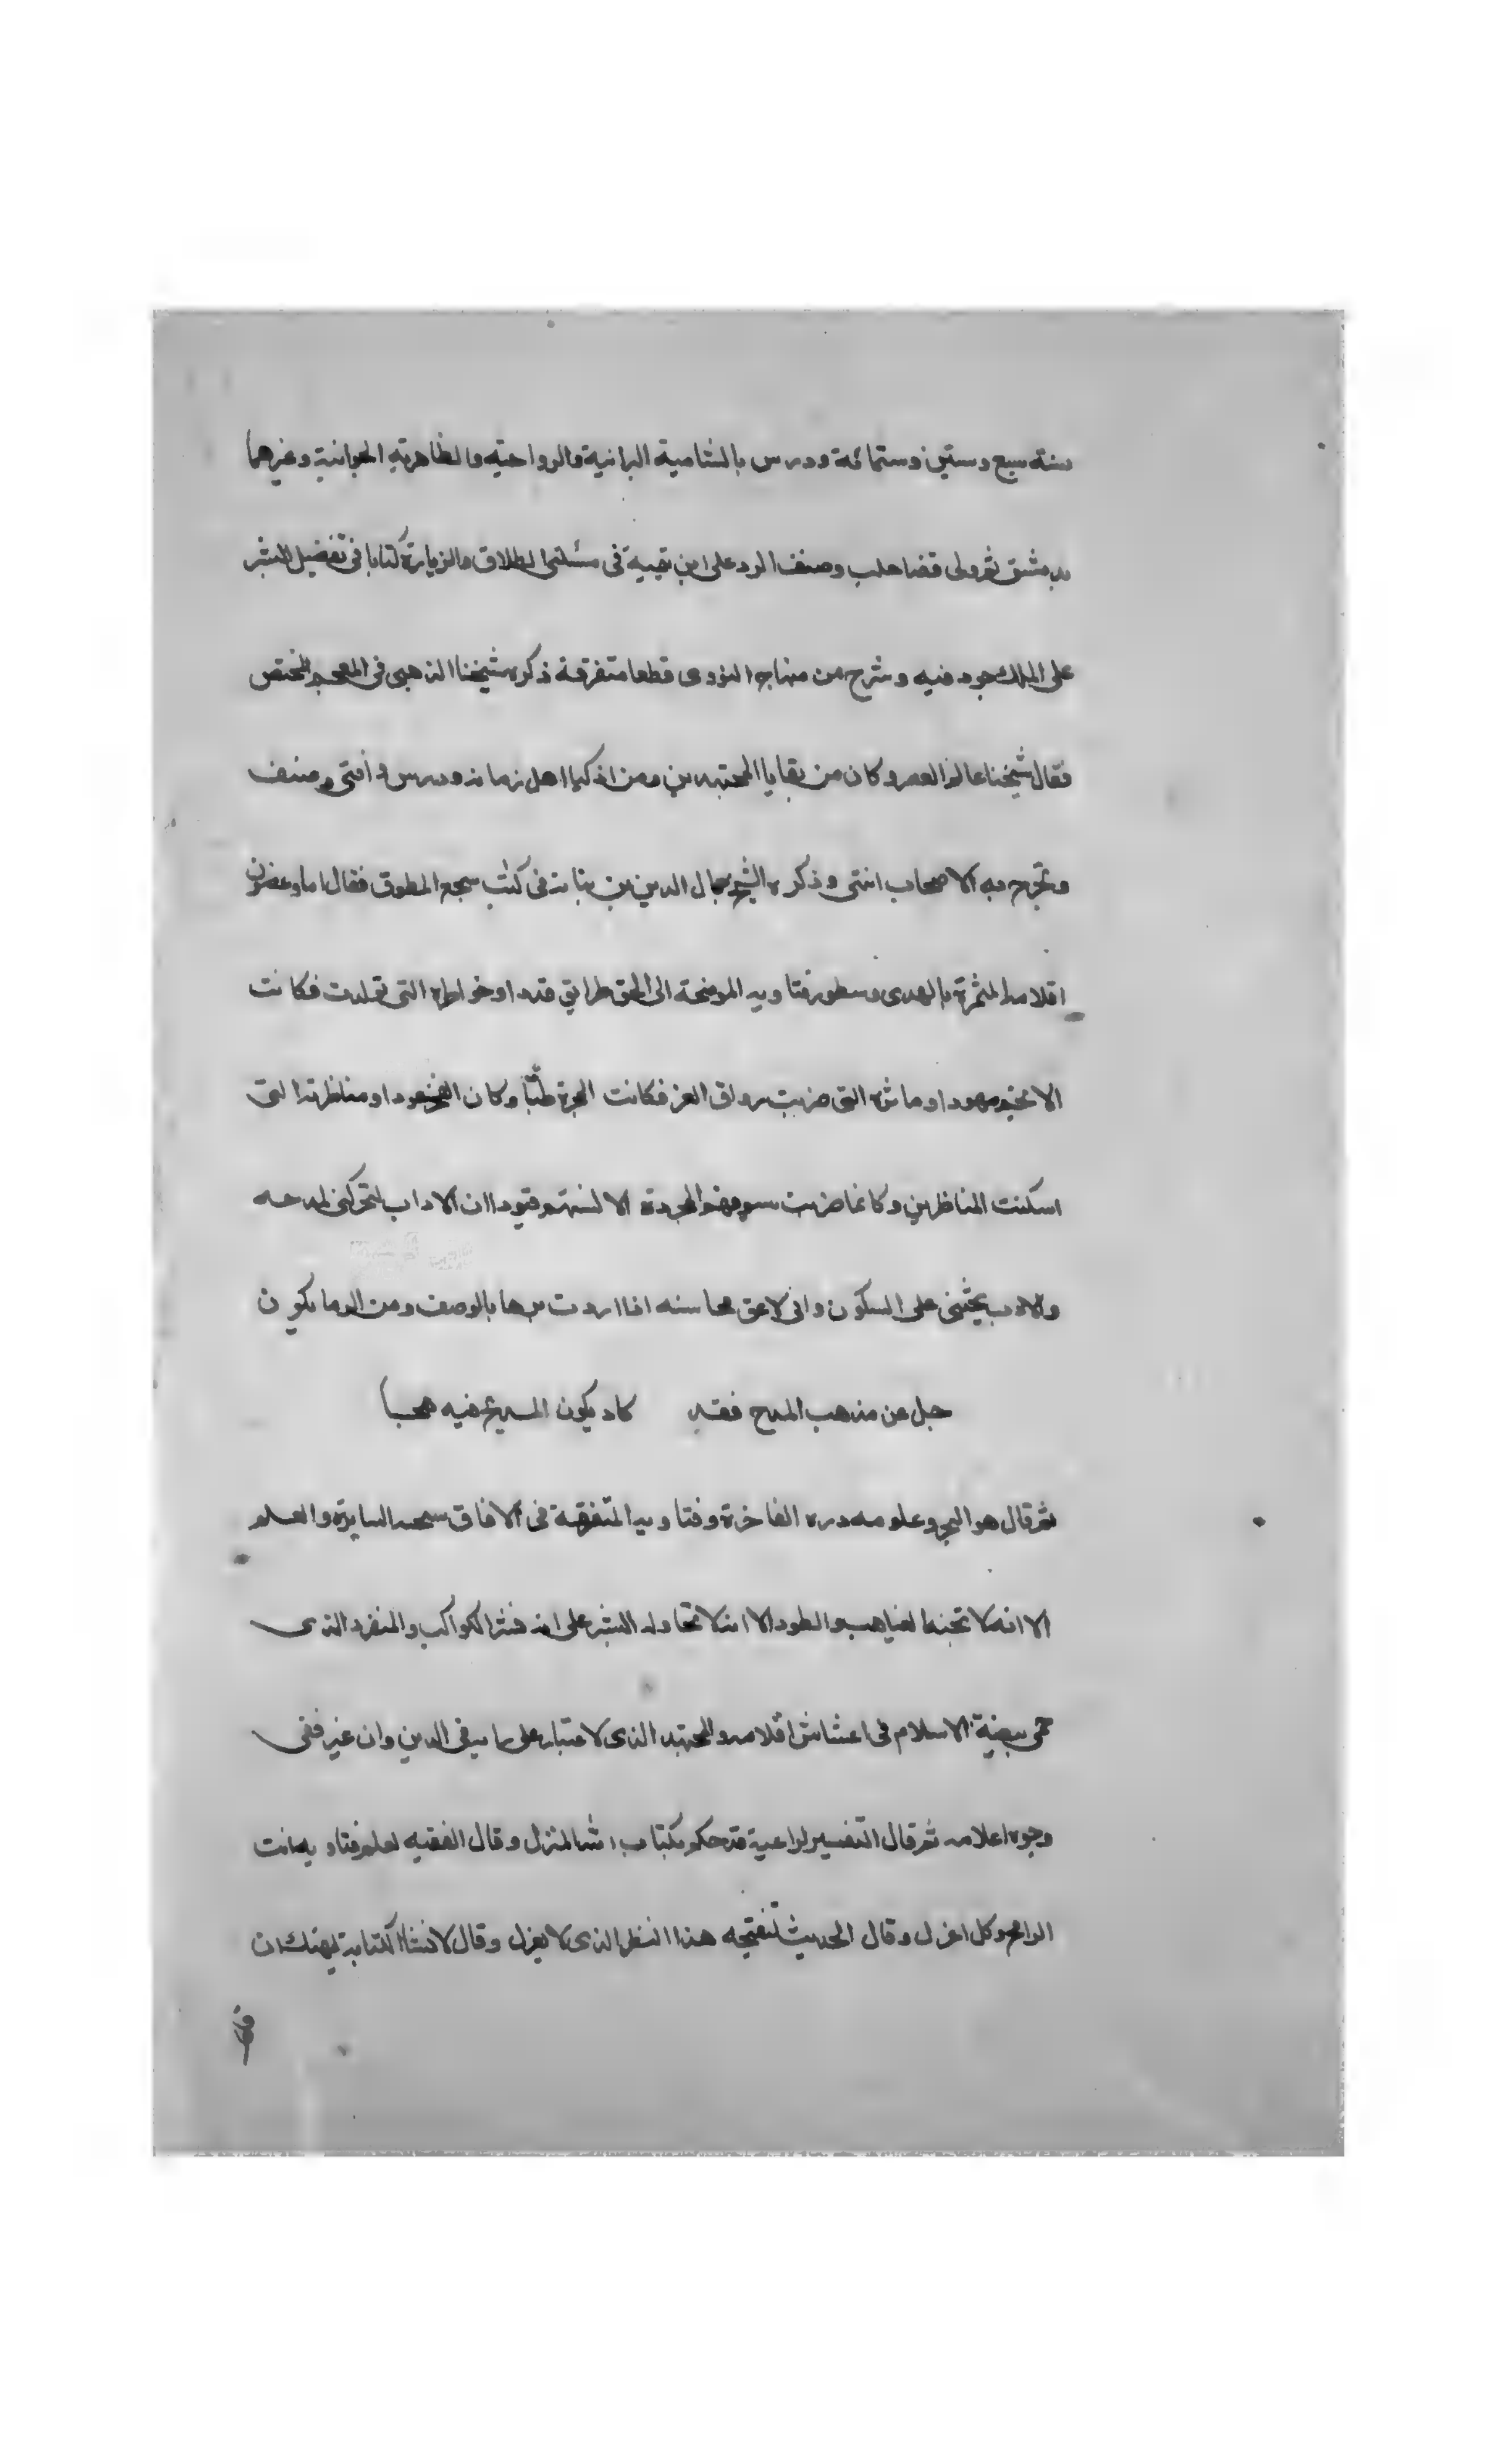 سنة سبع وستين وستمائة ودرس بالشامية البرانية والرواحية والظاهرية الجوانية وغيرهما
بدمشق ثم ولى قضا حلب وصنف الرد على ابن تيمية فى مسئلتى الطلاق والزيارة كتابا فى تفضيل البشر
على الملك جود فيه وشرح من منهاج النووى قطعا متفرقة ذكره شيخنا الذهبى فى المعجم المختص
فقال شيخنا عالم العصر وكان من بقايا المجتهدين ومن اذكيا اهل زمانه ودرس وافتى وصنف
وتخرج به الاصحاب انتهى وذكره الشيخ جمال الدين بن نباتة فى كتاب سجع المطوق فقال اما وغصون
اقلامه المثمرة بالهدى وسطور فتاويه الموضحة الى الحق طرايق قددا وخواطره التى تولدت فكانت
الانجم مهودا وماثره التى ضربت رواق العز فكانت المجرة طنبا وكان الفجر عمودا ومناظرته التى
اسكتت المناظرين وكانما ضربت سيوفها المجردة الالسنتهم قيودا ان الاداب لتحركنى لمدحه
والادب يحثنى على السكون وانى لاعق محاسنه اذا اردت برها بالوصف ومن البر ما يكون
جل عن مذهب المديح فقد كاد يكون المديح فيه هجبا
ثم قال هو البحر وعلومه درره الفاخرة وفتاويه المتفرقة فى الافاق سحبه السايرة والعلم
الا انه لا تجنه الغياهب والطود الا انه لا تحاوله البشر على انه فنثر الكواكب والمنفرد الذى
حمى بيضة الاسلام فى اعشاش اقلامه والمجتهد الذى لا غبار على رايه فى الدين وان غبر ففى
وجوه اعلامه ثم قال التفسير لراعية قد حكم بكتاب الله المنزل وقال الفقيه لعلم فتاويه انت
الرامح وكل اعزل وقال الحديث لتنقيحه هذا النظر الذى لا يعزل وقال لانشا الكتابة ليهنك ان